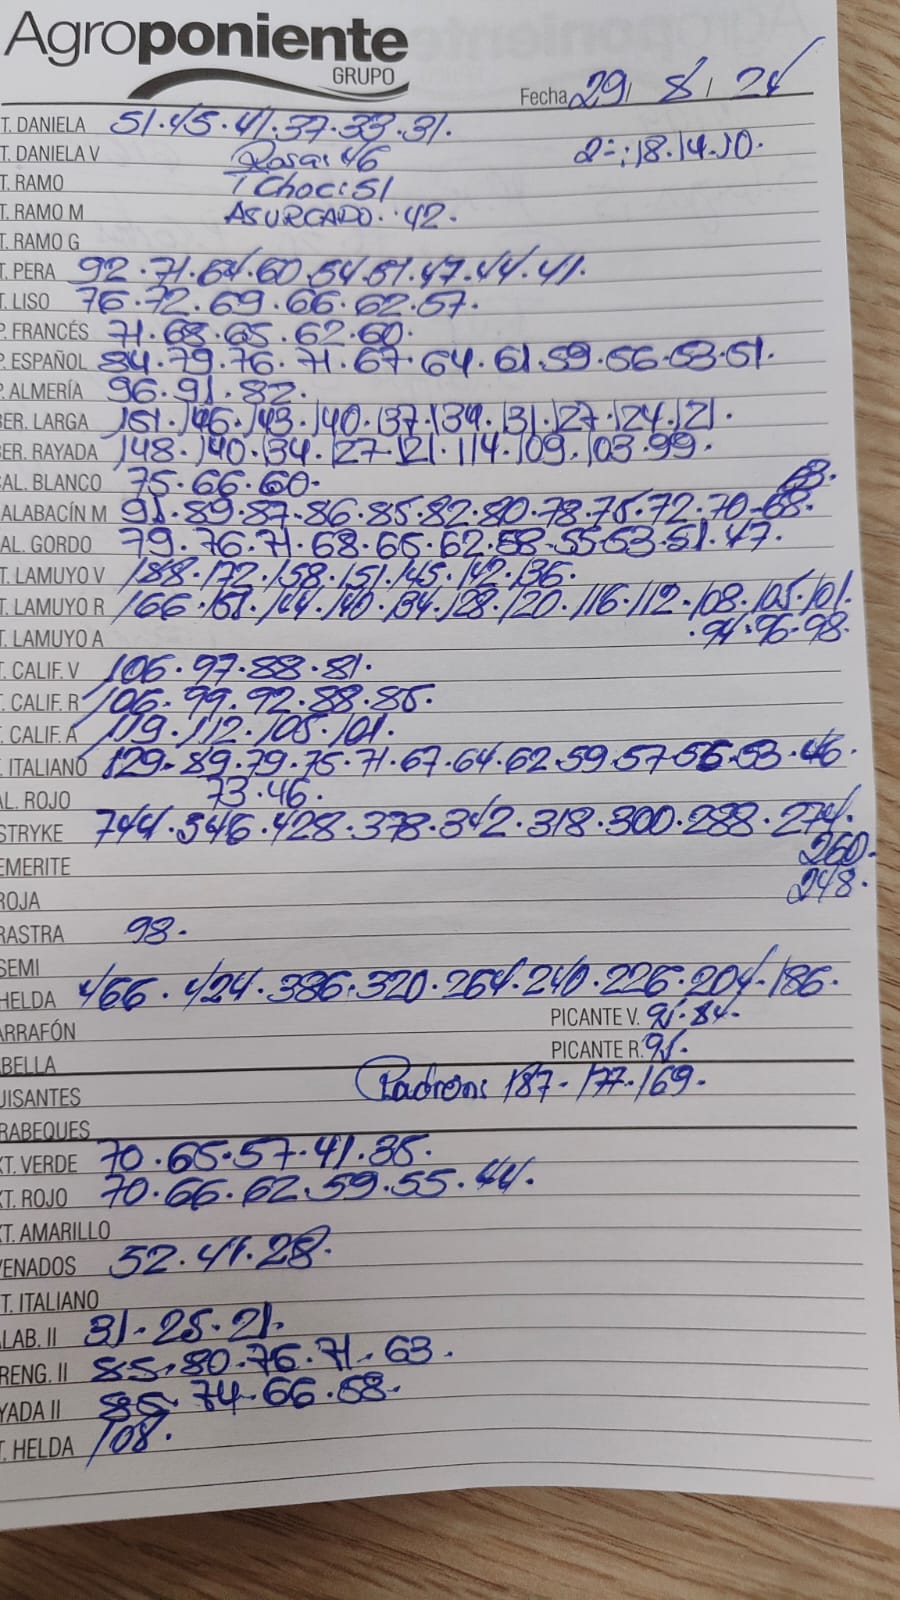 Agroponiente
GRUPO
Fecha 29 / 8 / 24
T. DANIELA 51.45.41.37.33.31.
T. DANIELA V Rosa: 46 2ª:18.14.10.
T. RAMO T Choc: 51
T. RAMO M ASURCADO..42.
T. RAMO G
T. PERA 92.71.64.60.54.51.47.44.41.
T. LISO 76.72.69.66.62.57.
P. FRANCÉS 71.68.65.62.60.
P. ESPAÑOL 84.79.76.71.67.64.61.59.56.53.51.
P. ALMERÍA 96.91.82.
BER. LARGA 151.146.143.140.137.134.131.127.124.121.
BER. RAYADA 148.140.134.127.121.114.109.103.99.
CAL. BLANCO 75.66.60. 63.
ALABACÍN M 91.89.87.86.85.82.80.78.75.72.70-68.
AL. GORDO 79.76.71.68.65.62.58-55.53.51.47.
T. LAMUYO V 188.172.158.151.145.142.136.
T. LAMUYO R 166.151.144.140.134.128.120.116.112.108.105.101.
T. LAMUYO A .94.96.98.
T. CALIF. V 106.97.88.81.
T. CALIF. R 106.99.92.88.85.
T. CALIF. A 119.112.105.101.
. ITALIANO 129.89.79.75.71.67.64.62.59.57.56.53.46.
AL. ROJO 73.46.
STRYKE 744.546.428.378.342.318.300.288.274.
EMERITE 260.
ROJA 248.
RASTRA 98.
SEMI
HELDA 466.424.386.320.264.240.226.204.186.
ARRAFÓN PICANTE V. 95.84.
BELLA PICANTE R. 95.
UISANTES Padron: 187-177.169.
RABEQUES
XT. VERDE 70.65.57.41.35.
XT. ROJO 70.66.62.59.55.44.
XT. AMARILLO
VENADOS 52.41.28.
T. ITALIANO
LAB. II 31.25.21.
RENG. II 85.80.76.71.63.
YADA II 85.74.66.58.
T. HELDA 108.